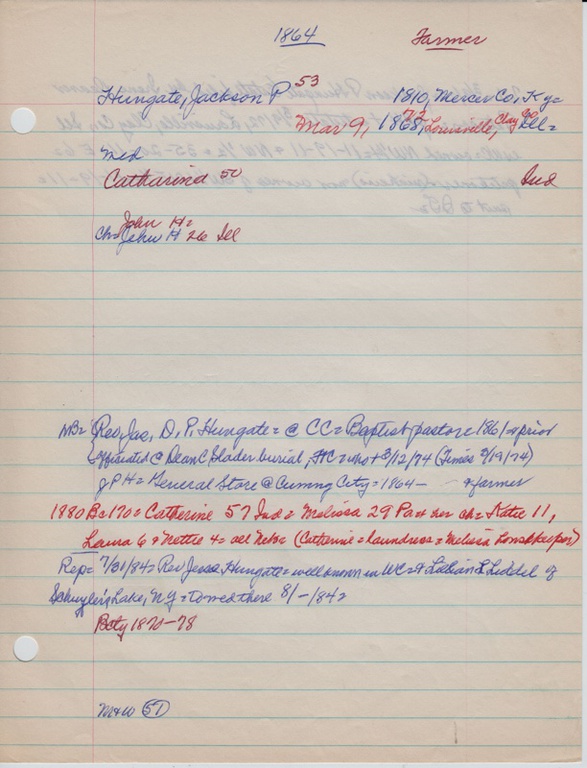 1864 Farmer
Hungate, Jackson P 53 1810, Mercer Co, Ky=
Mar 9, 1868, 72 Louisville, Clay Co Ill=
med
Catharind 50 Ind
John H=
Ch= John H 26 Ill
NB= Rev, Jac, D, P, Hungate= @ CC= Baptist pastor= 1861 & prior
officiated @ Dean C Slader burial, WC= who + 3/12/74 (Times 3/19/74)
J P H= General Store @ Cuming City= 1864— & farmer
1880 Bc 170= Catherine 57 Ind= Melissa 29 Pa & her ch= Katie 11,
Laura 6 & Nettie 4= all Neb= (Catherine= laundress= Melissa housekeeper)
Rep= 7/31/84= Rev Jesse Hungate= well known in WC= & Lillian L Liddel of
Schuyler's Lake, NY= to wed there 8/-/84=
Bcty 1870-78
M&W 57